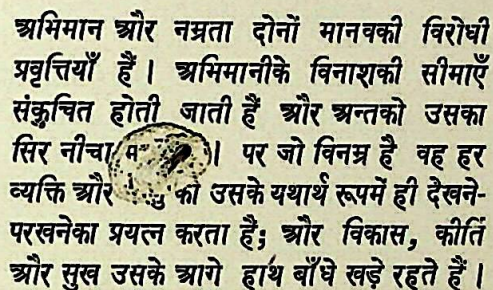 अभिमान और नम्रता दोनों मानवकी विरोधी
प्रवृत्तियाँ हैं । अभिमानीके विनाशकी सीमाएँ
संकुचित होती जाती हैं और अन्तको उसका
सिर नीचा । पर जो विनम्र है वह हर
व्यक्ति और को उसके यथार्थ रूपमें ही देखने-
परखनेका प्रयत्न करता है; और विकास, कीर्ति
और सुख उसके आगे हाथ बाँधे खड़े रहते हैं ।